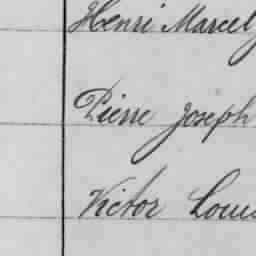 Henri Marcel
Pierre Joseph
Victor Louis